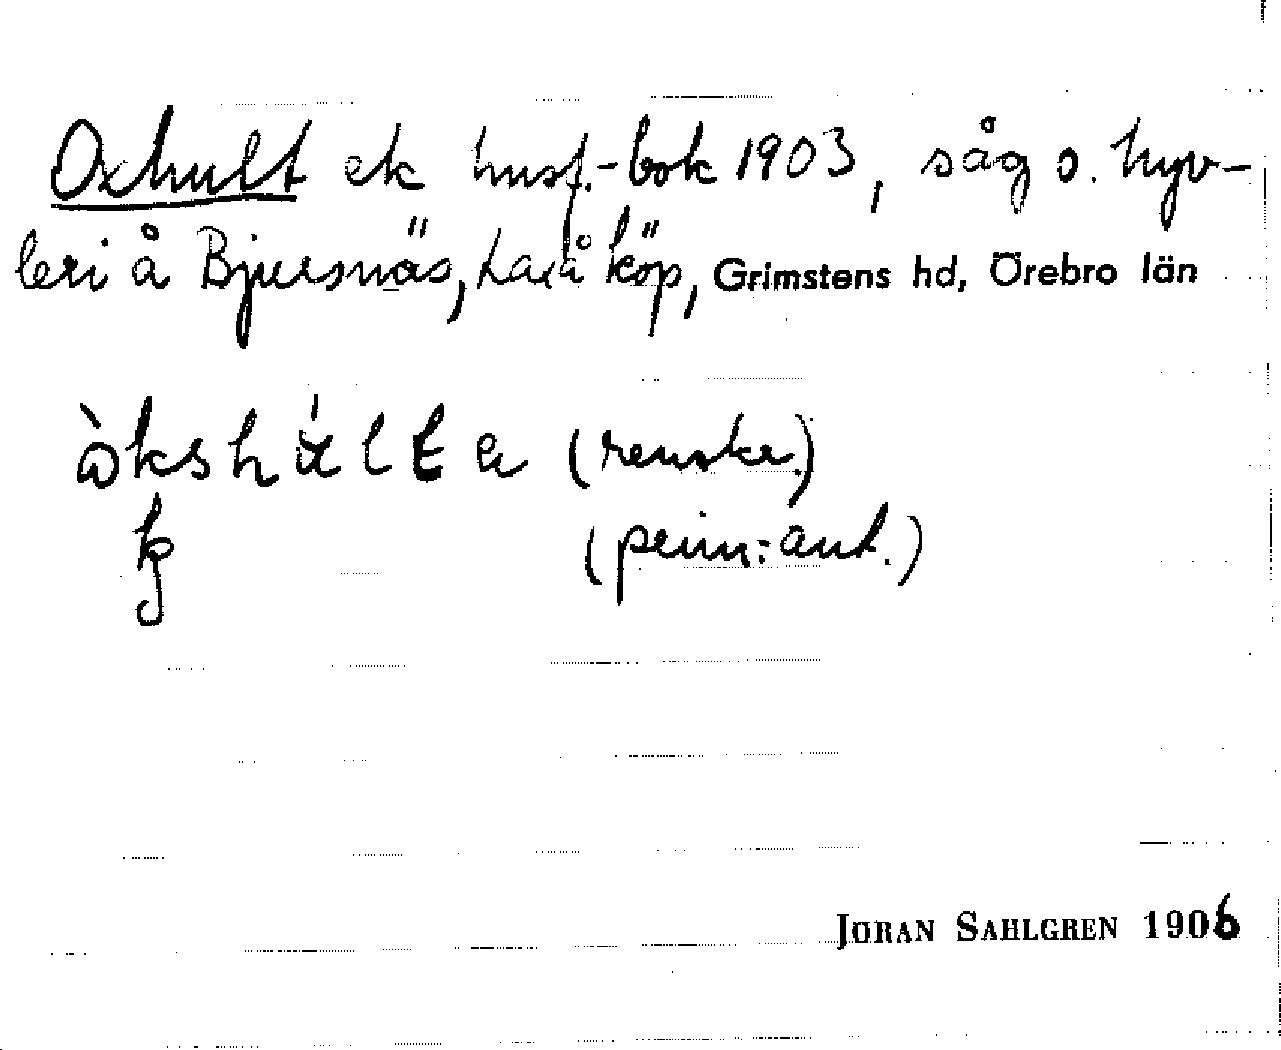 Oxhult ek husf.-bok 1903, såg o. hyv-
leri å Bjursnäs, Hardköp, Grimstens hd, Örebro län
òkshúlta (renskr.)
k (prim: ant.)
JÖRAN SAHLGREN 1906